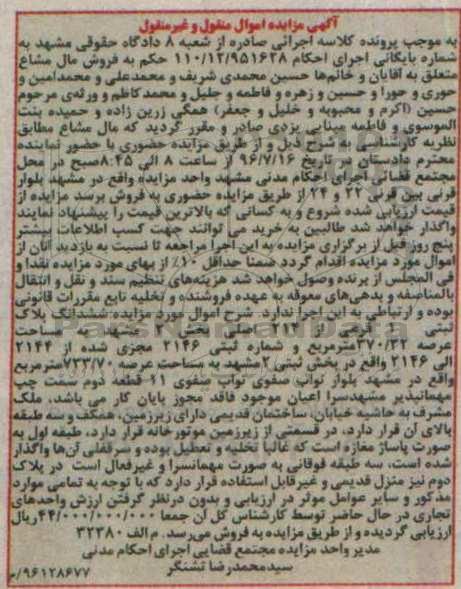 آگهی مزایده اموال منقول و غیرمنقول
به موجب پرونده کلاسه اجرائی صادره از شعبه ۸ دادگاه حقوقی مشهد به
شماره بایگانی اجرای احکام ۱۱۰/۱۲/۹۵۱۶۲۸ حکم به فروش مال مشاع
متعلق به آقایان و خانم‌ها حسین محمدی شریف و محمدعلی و محمدامین و
حوری و حورا و حسین و زهره و فاطمه و جلیل و محمدکاظم و ورثه‌ی مرحوم
حسین (اکرم و محبوبه و خلیل و جعفر) همگی زرین زاده و حمیده بنت
الموسوی و فاطمه بینایی یزدی صادر و مقرر گردید که مال مشاع مطابق
نظریه کارشناسی به شرح ذیل و از طریق مزایده حضوری با حضور نماینده
محترم دادستان در تاریخ ۹۶/۷/۱۶ از ساعت ۸ الی ۸:۴۵صبح در محل
مجتمع قضائی اجرای احکام مدنی مشهد واحد مزایده واقع در مشهد بلوار
قرنی بین قرنی ۲۲ و ۲۴ از طریق مزایده حضوری به فروش برسد مزایده از
قیمت ارزیابی شده شروع و به کسانی که بالاترین قیمت را پیشنهاد نمایند
واگذار خواهد شد طالبین به خرید می توانند جهت کسب اطلاعات بیشتر
پنج روز قبل از برگزاری مزایده به این اجرا مراجعه تا نسبت به بازدید آنان از
اموال مورد مزایده اقدام گردد ضمنا حداقل ۱۰٪ از بهای مورد مزایده نقدا و
فی المجلس از برنده وصول خواهد شد هزینه‌های تنظیم سند و نقل و انتقال
بالمناصفه و بدهی‌های معوقه به عهده فروشنده و تخلیه تابع مقررات قانونی
بوده و ارتباطی به این اجرا ندارد. شرح اموال مورد مزایده: ششدانگ پلاک
ثبتی ۲۱۴۴ اصلی بخش ۲ مشهد به مساحت
عرصه ۳۷۰/۳۲مترمربع و شماره ثبتی ۲۱۴۶ مجزی شده از ۲۱۴۴
الی ۲۱۴۶ واقع در بخش ثبتی ۲مشهد به مساحت عرصه ۷۳۳/۷۰مترمربع
واقع در مشهد بلوار نواب صفوی نواب صفوی ۱۱ قطعه دوم سمت چپ
مهمانپذیر مشهدسرا اعیان موجود فاقد مجوز پایان کار می باشد، ملک
مشرف به حاشیه خیابان، ساختمان قدیمی دارای زیرزمین، همکف و سه طبقه
بالای آن قرار دارد، در قسمتی از زیرزمین موتورخانه قرار دارد، طبقه اول به
صورت پاساژ مغازه است که غالبا تخلیه و تعطیل بوده و سرقفلی آن‌ها واگذار
شده است، سه طبقه فوقانی به صورت مهمانسرا و غیرفعال است در پلاک
دوم نیز منزل قدیمی و غیرقابل استفاده قرار دارد که با توجه به تمامی موارد
مذکور و سایر عوامل موثر در ارزیابی و بدون درنظر گرفتن ارزش واحدهای
تجاری در حال حاضر توسط کارشناس کل آن جمعا ۴۴/۰۰۰/۰۰۰/۰۰۰ریال
ارزیابی گردیده و از طریق مزایده به فروش می‌رسد. م الف ۳۲۳۸۰
مدیر واحد مزایده مجتمع قضایی اجرای احکام مدنی
سیدمحمدرضا تشنگر
۹۶۱۲۸۶۷۷/م